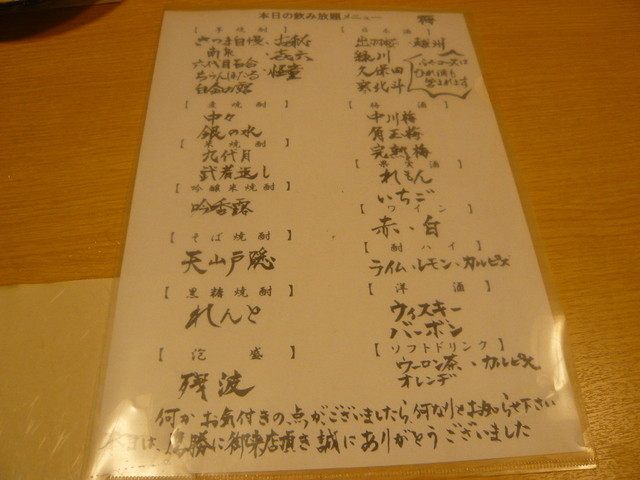 本日の飲み放題メニュー
【芋焼酎】
さつま自慢、お私
南泉 㐂六
六代目百合 怪童
ちらんほたる
白金乃露
【麦焼酎】
中々
銀の水
【米焼酎】
九代目
武者返し
【吟醸米焼酎】
吟香露
【そば焼酎】
天山戸隠
【黒糖焼酎】
れんと
【泡盛】
残波
【日本酒】
出羽桜、越州
緑川
久保田
寒北斗
ふぐコースは
ひれ酒も
含まれます
【梅酒】
中川梅
貿王梅
完熟梅
【果実酒】
れもん
いちご
【ワイン】
赤、白
【酎ハイ】
ライム、レモン、カルピス
【洋酒】
ウィスキー
バーボン
【ソフトドリンク】
ウーロン茶、カルピス
オレンヂ
何かお気付きの点がございましたら、何なりとお知らせ下さい
本日は、鳥勝に御来店頂き誠にありがとうございました